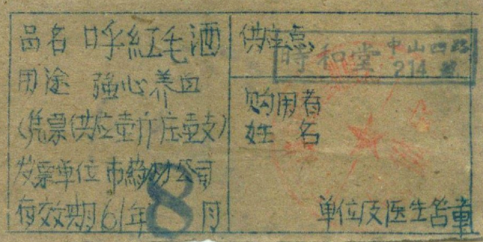 品名 呼紅毛酒
用途 強心养血
(凭票供应壹斤庄壹支)
发票单位 市药材公司
有效期61年8月
供应点
時和堂 中山四路
214 號
购用者
姓 名
单位及医生签章